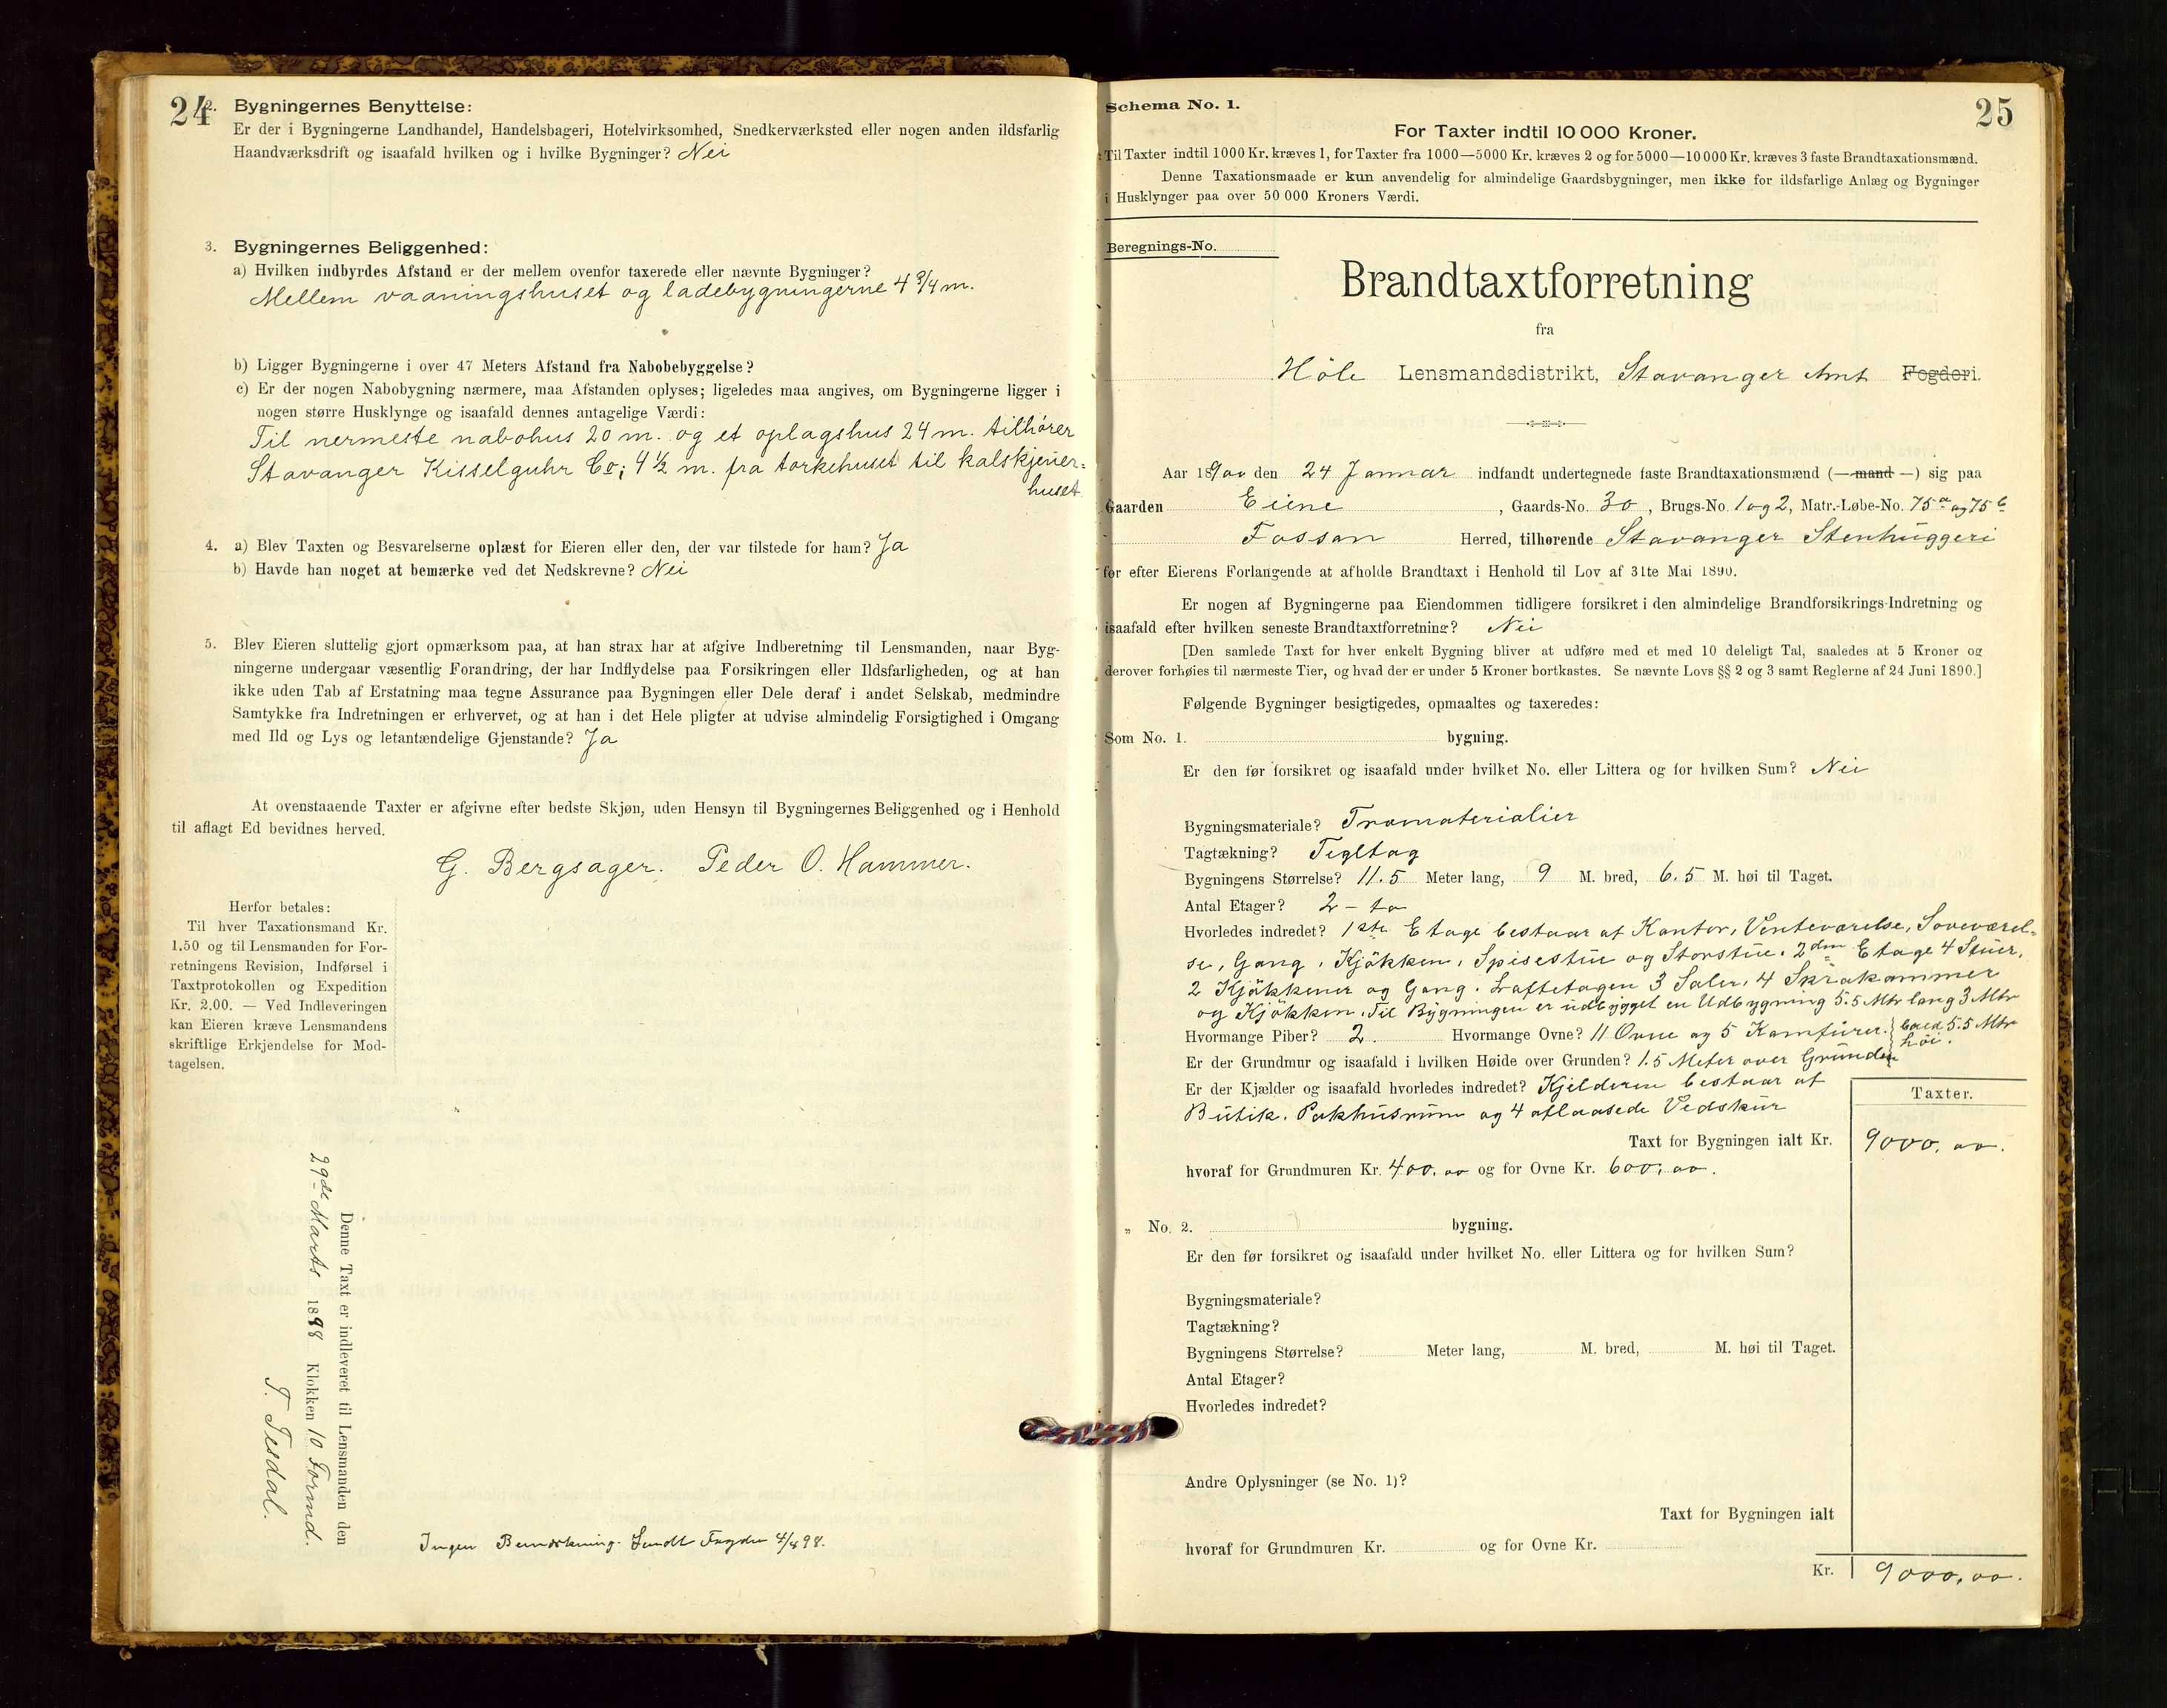 24
2. Bygningernes Benyttelse:
Er der i Bygningerne Landhandel, Handelsbageri, Hotelvirksomhed, Snedkerværksted eller nogen anden ildsfarlig
Haandværksdrift og isaafald hvilken og i hvilke Bygninger? Nei
3. Bygningernes Beliggenhed:
a) Hvilken indbyrdes Afstand er der mellem ovenfor taxerede eller nævnte Bygninger?
Mellem vaaningshuset og ladebygningerne 4 3/4 m.
b) Ligger Bygningerne i over 47 Meters Afstand fra Nabobebyggelse?
c) Er der nogen Nabobygning nærmere, maa Afstanden oplyses; ligeledes maa angives, om Bygningerne ligger i
nogen større Husklynge og isaafald dennes antagelige Værdi:
Til nermeste nabohus 20 m. og et oplagshus 24 m. tilhører
Stavanger Kisselguhr Co; 4 1/2 m. fra tørkehuset til kalskjener=
huset
4. a) Blev Taxten og Besvarelserne oplæst for Eieren eller den, der var tilstede for ham? Ja
b) Havde han noget at bemærke ved det Nedskrevne? Nei
5. Blev Eieren sluttelig gjort opmærksom paa, at han strax har at afgive Indberetning til Lensmanden, naar Byg-
ningerne undergaar væsentlig Forandring, der har Indflydelse paa Forsikringen eller Ildsfarligheden, og at han
ikke uden Tab af Erstatning maa tegne Assurance paa Bygningen eller Dele deraf i andet Selskab, medmindre
Samtykke fra Indretningen er erhvervet, og at han i det Hele pligter at udvise almindelig Forsigtighed i Omgang
med Ild og Lys og letantændelige Gjenstande? Ja
At ovenstaaende Taxter er afgivne efter bedste Skjøn, uden Hensyn til Bygningernes Beliggenhed og i Henhold
til aflagt Ed bevidnes herved.
G. Bergsager. Peder O. Hammer.
Herfor betales:
Til hver Taxationsmand Kr.
1.50 og til Lensmanden for For-
retningens Revision, Indførsel i
Taxtprotokollen og Expedition
Kr. 2.00. — Ved Indleveringen
kan Eieren kræve Lensmandens
skriftlige Erkjendelse for Mod-
tagelsen.
Denne Taxt er indleveret til Lensmanden den
29de Marts 1898 Klokken 10 Formd.
T. Tesdal.
Ingen Bemærkning. Sundt Fogden 4/4 98.
25
Schema No. 1.
For Taxter indtil 10 000 Kroner.
Til Taxter indtil 1000 Kr. kræves 1, for Taxter fra 1000—5000 Kr. kræves 2 og for 5000—10 000 Kr. kræves 3 faste Brandtaxationsmænd.
Denne Taxationsmaade er kun anvendelig for almindelige Gaardsbygninger, men ikke for ildsfarlige Anlæg og Bygninger
i Husklynger paa over 50 000 Kroners Værdi.
Beregnings-No.
Brandtaxtforretning
fra
Höle Lensmandsdistrikt, Stavanger Amt Fogderi.
Aar 1900 den 24 Januar indfandt undertegnede faste Brandtaxationsmænd (— mand —) sig paa
Gaarden Eiene, Gaards-No. 30, Brugs-No. 1 og 2, Matr.-Løbe-No. 75a og 75b
Fossan Herred, tilhørende Stavanger Stenhuggeri
før efter Eierens Forlangende at afholde Brandtaxt i Henhold til Lov af 31te Mai 1890.
Er nogen af Bygningerne paa Eiendommen tidligere forsikret i den almindelige Brandforsikrings-Indretning og
isaafald efter hvilken seneste Brandtaxtforretning? Nei
[Den samlede Taxt for hver enkelt Bygning bliver at udføre med et med 10 deleligt Tal, saaledes at 5 Kroner og
derover forhøies til nærmeste Tier, og hvad der er under 5 Kroner bortkastes. Se nævnte Lovs §§ 2 og 3 samt Reglerne af 24 Juni 1890.]
Følgende Bygninger besigtigedes, opmaaltes og taxeredes:
Som No. 1. bygning.
Er den før forsikret og isaafald under hvilket No. eller Littera og for hvilken Sum? Nei
Bygningsmateriale? Træmaterialier
Tagtækning? Tegltag
Bygningens Størrelse? 11.5 Meter lang, 9 M. bred, 6.5 M. høi til Taget.
Antal Etager? 2 - to
Hvorledes indredet? 1ste Etage bestaar af Kontor, Venteværelse, Soveværel-
se, Gang, Kjökken, Spisestue og Storstue. 2den Etage 4 Stuer,
2 Kjökkener og Gang. Loftetagen 3 Saler, 4 Skråkammer
og Kjökken. Til Bygningen er udbygget en Udbygning 5.5 Mtr lang 3 Mtr
bred 5.5 Mtr
høi.
Hvormange Piber? 2. Hvormange Ovne? 11 Ovne og 5 Komfurer.
Er der Grundmur og isaafald i hvilken Høide over Grunden? 1.5 Meter over Grunden
Er der Kjælder og isaafald hvorledes indredet? Kjelderen bestaar af
Butik, Pakhusrum og 4 aflaasede Vedskur
Taxter.
Taxt for Bygningen ialt Kr. 9000,00.
hvoraf for Grundmuren Kr. 400,00 og for Ovne Kr. 600,00.
„ No. 2. bygning.
Er den før forsikret og isaafald under hvilket No. eller Littera og for hvilken Sum?
Bygningsmateriale?
Tagtækning?
Bygningens Størrelse? Meter lang, M. bred, M. høi til Taget.
Antal Etager?
Hvorledes indredet?
Andre Oplysninger (se No. 1)?
Taxt for Bygningen ialt
hvoraf for Grundmuren Kr. og for Ovne Kr.
Kr. 9000,00.